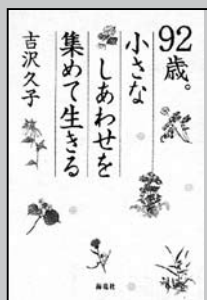 92歳。
小さな
しあわせを
集めて生きる
吉沢久子
海竜社